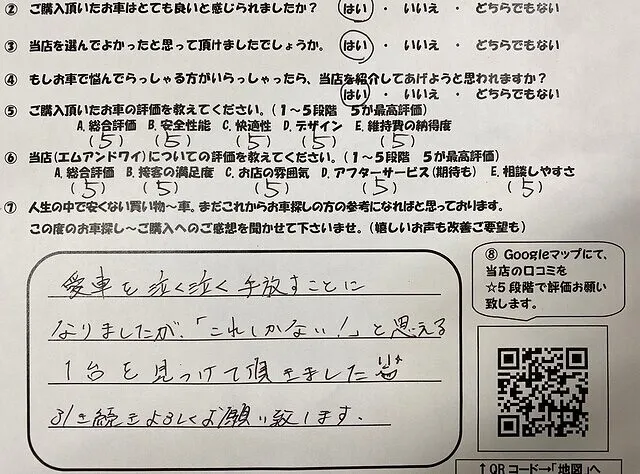 ② ご購入頂いたお車はとても良いと感じられましたか？ はい ・ いいえ ・ どちらでもない
③ 当店を選んでよかったと思って頂けましたでしょうか。 はい ・ いいえ ・ どちらでもない
④ もしお車で悩んでらっしゃる方がいらっしゃったら、当店を紹介してあげようと思われますか？
はい ・ いいえ ・ どちらでもない
⑤ ご購入頂いたお車の評価を教えてください。（１～５段階 ５が最高評価）
A. 総合評価 B. 安全性能 C. 快適性 D. デザイン E. 維持費の納得度
（5）（5）（5）（5）（5）
⑥ 当店（エムアンドワイ）についての評価を教えてください。（１～５段階 ５が最高評価）
A. 総合評価 B. 接客の満足度 C. お店の雰囲気 D. アフターサービス（期待も） E. 相談しやすさ
（5）（5）（5）（5）（5）
⑦ 人生の中で安くない買い物～車。まだこれからお車探しの方の参考になればと思っております。
この度のお車探し～ご購入へのご感想を聞かせて下さいませ。（嬉しいお声も改善ご要望も）
愛車を泣く泣く手放すことに
なりましたが、「これしかない！」と思える
1台を見つけて頂きました
引き続きよろしくお願い致します。
⑧ Googleマップにて、
当店の口コミを
☆５段階で評価お願い
致します。
↑QRコード→「地図」へ